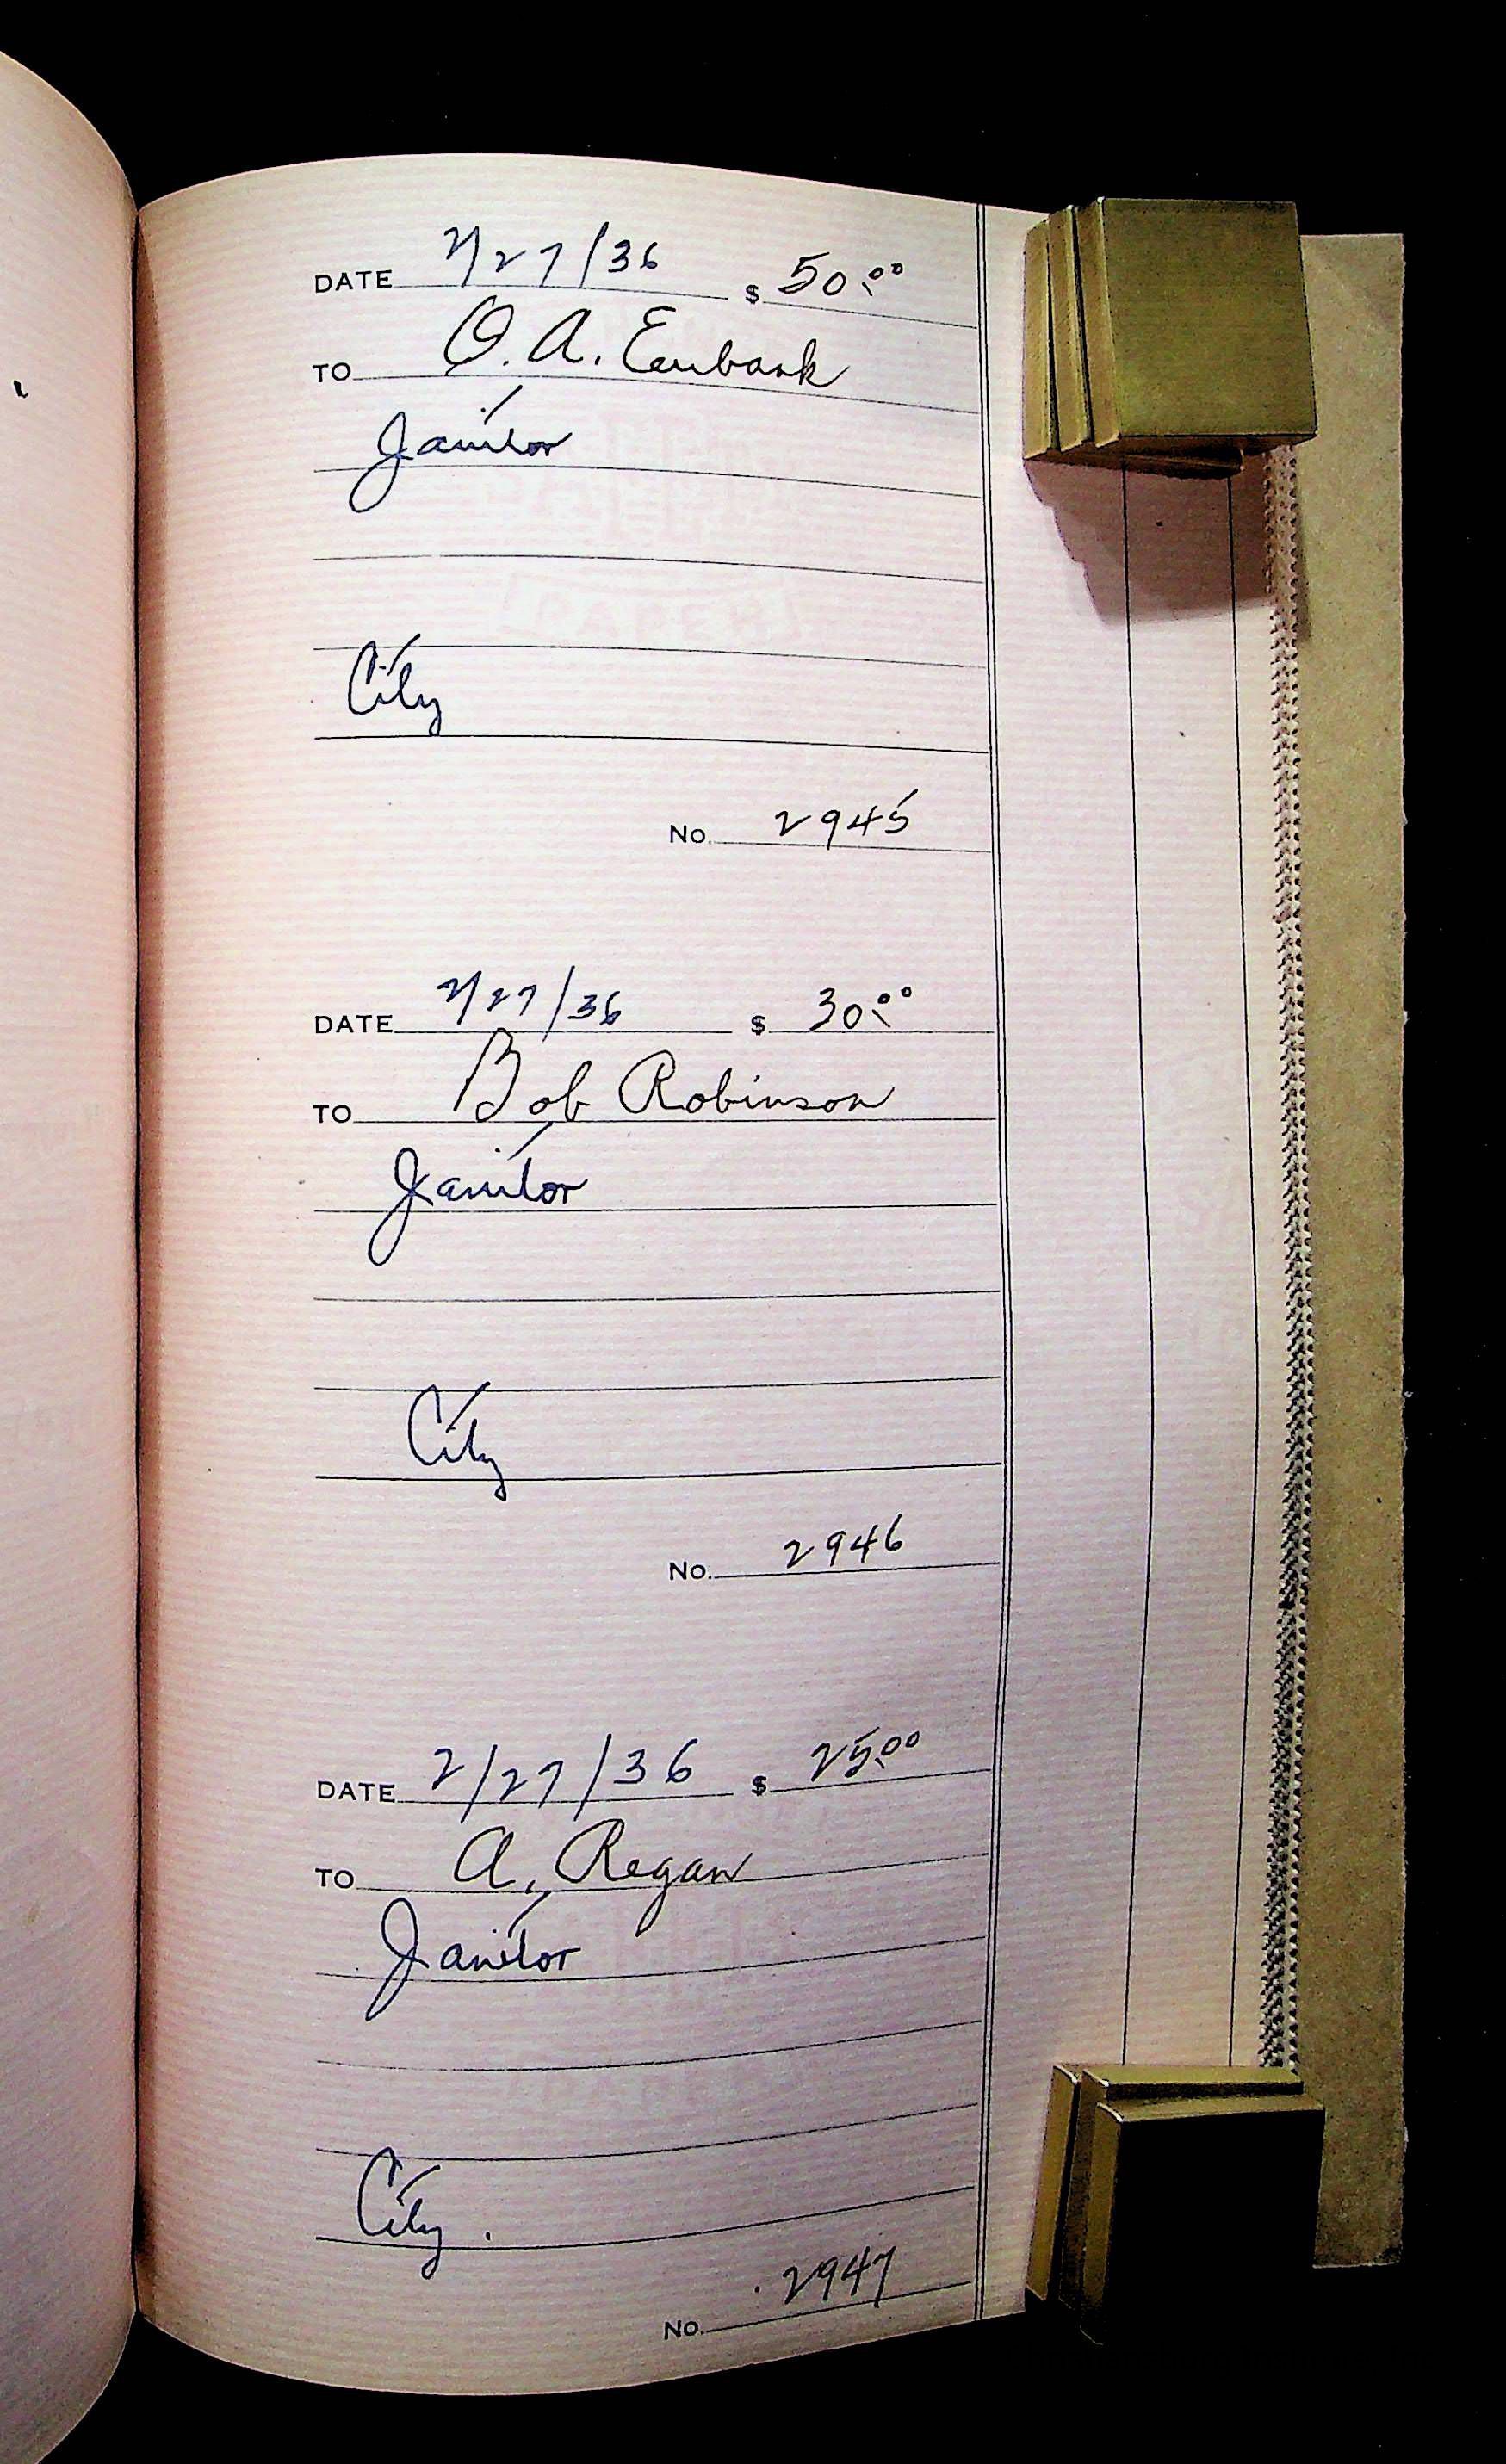 DATE 2/27/36 $ 50.00
TO O. A. Eubank
Janitor
City
No. 2945
DATE 2/27/36 $ 30.00
TO Bob Robinson
Janitor
City
No. 2946
DATE 2/27/36 $ 25.00
TO A. Regan
Janitor
City.
No. 2947